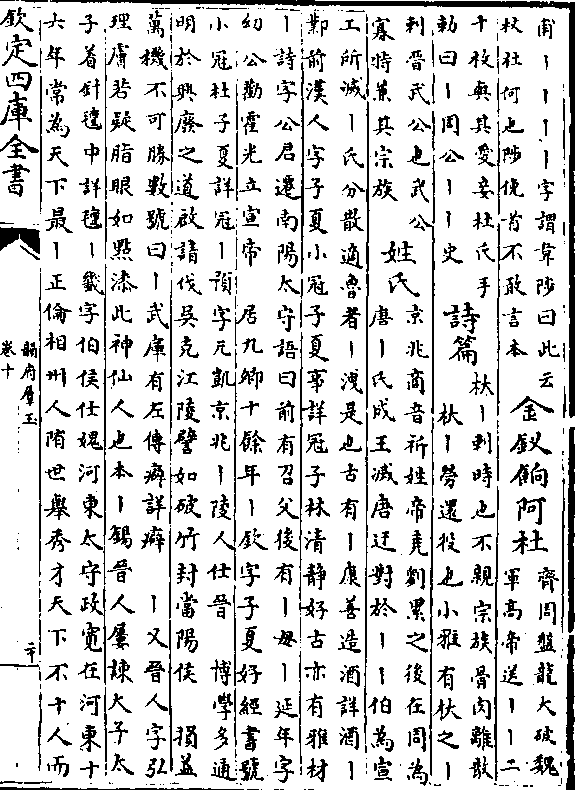 甫丨丨丨丨字謂韋陟曰此云
杕杜何也陟俛首不敢言本
金釵餉阿杜
齊周盤龍大破魏
軍髙帝送丨丨二
十枚與其愛妾杜氏手
勅曰丨周公丨丨史
詩篇
杕丨刺時也不親宗族骨肉離散
杕丨勞還役也小雅有杕之丨
刺晉武公也武公
寡特兼其宗族
姓氏
京兆商音祈姓帝堯劉累之後在周為
唐丨氏成王滅唐迁對於丨丨伯為宣
工所滅丨氏分散適魯者丨洩是也古有丨康善造酒詳酒丨
鄴前漢人字子夏小冠子夏事詳冠子林清静好古亦有雅材
丨詩字公君遷南陽太守語曰前有召父後有丨母丨延年字
幼公勸霍光立宣帝 居九卿十餘年丨欽字子夏好經書號
小冠杜子夏詳冠丨預字元凱京兆丨陵人仕晉 博學多通
明於興廢之道啟請伐吳克江陵譬如破竹封當陽侯 損益
萬機不可勝數號曰丨武庫有左傳癖詳癖 丨乂晉人字弘
理膚若凝脂眼如點漆此神仙人也本丨錫晉人屢諫大子太
子着針氊中詳氊丨畿字伯侯仕魏河東太守政寛在河東十
六年常為天下最丨正倫相州人隋世舉秀才天下不十人而
欽定四庫全書
韻府羣玉
卷十
二十